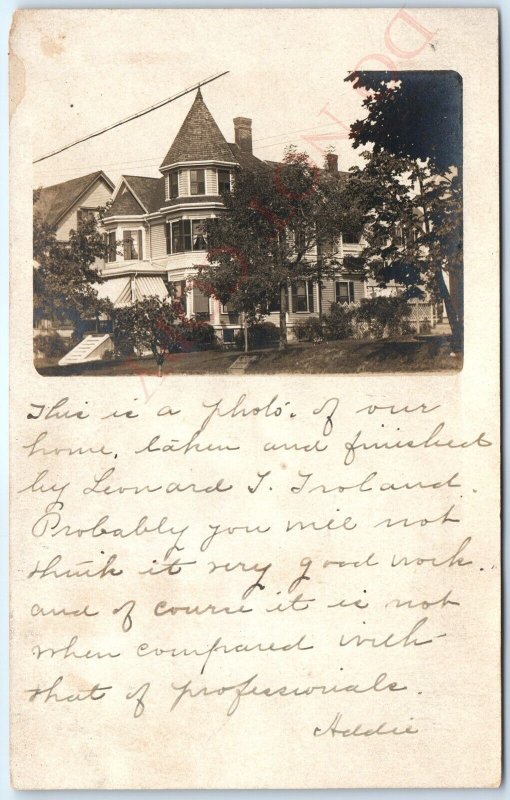 This is a photo. of our
home, taken and finished
by Leonard T.
Probably you will not
think it very good work.
and of course it is not
when compared with
that of professionals.
Addie